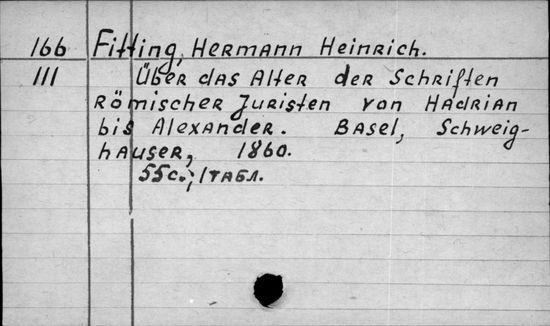 166 Fitting, Hermann Heinrich.
111 Über das Alter der Schriften
Römischer Juristen von Hadrian
bis Alexander. Basel, Schweig-
hauser, 1860.
55 с.; 1 табл.